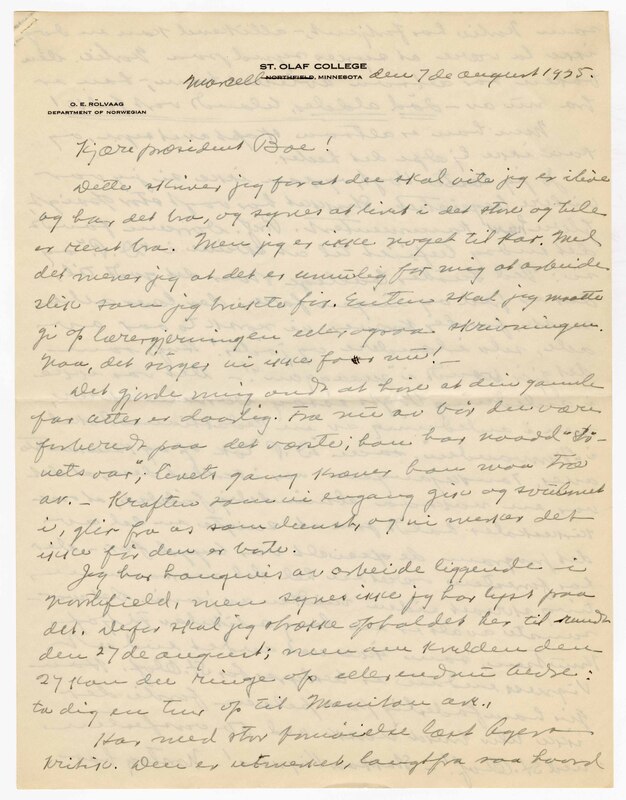 ST. OLAF COLLEGE
Marcell NORTHFIELD, MINNESOTA den 7de august 1925.
O. E. RÖLVAAG
DEPARTMENT OF NORWEGIAN
Kjære præsident Boe!
Dette skriver jeg for at du skal vite jeg er ilive
og har det bra, og synes at livet i det store og hele
er rient bra. Men jeg er ikke noget til kar. Med
det mener jeg at det er umulig for mig at arbeide
slik som jeg brukte før. Enten skal jeg maatte
gi op lærergjerningen eller ogsaa skrivningen.
Naa, det sørger vi ikke for nu! —
Det gjorde mig ondt at høre at din gamle
far atter er daarlig. Fra nu av bör du være
forberedt paa det værste; han har naadd "Stö-
vets aar"; livets gang kræver han maa træ
av. — Kraften som vi engang gik og svulmet
i, glir fra os som dunst, og vi merker det
ikke för den er borte.
Jeg har haugevis av arbeide liggende i
Northfield, men synes ikke jeg har lyst paa
det. Derfor skal jeg strække opholdet her til rundt
den 27de august; men om kvelden den
27 kan du ringe op eller endnu bedre:
ta dig en tur op til Manitou ave.,
Har med stor fornöielse læst Agers
kritik. Den er utmerket, langtfra saa haard